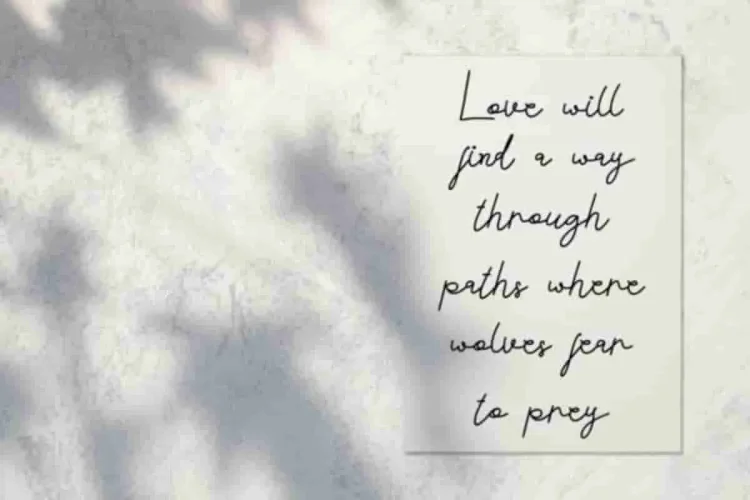 Love will
find a way
through
paths where
wolves fear
to prey